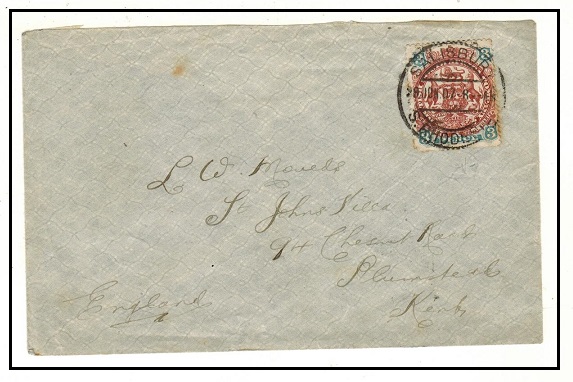 SALISBURY
S. RHODESIA
3 3
L. W. 
St Johns Villa
94 Chesnut Road
Plumstead
Kent
England